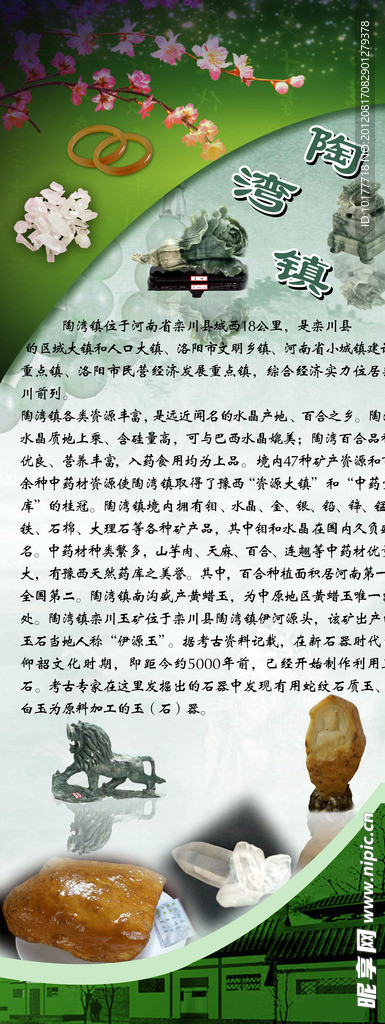 陶湾镇
陶湾镇位于河南省栾川县城西18公里，是栾川县
的区域大镇和人口大镇、洛阳市文明乡镇、河南省小城镇建设
重点镇、洛阳市民营经济发展重点镇，综合经济实力位居
川前列。
陶湾镇各类资源丰富，是远近闻名的水晶产地、百合之乡。陶
水晶质地上乘、含硅量高，可与巴西水晶媲美；陶湾百合品
优良、营养丰富，入药食用均为上品。境内47种矿产资源和
余种中药材资源使陶湾镇取得了豫西“资源大镇”和“中药
库”的桂冠。陶湾镇境内拥有钼、水晶、金、银、铅、锌、
铁、石棉、大理石等各种矿产品，其中钼和水晶在国内久负
名。中药材种类繁多，山茱肉、天麻、百合、连翘等中药材优
大，有豫西天然药库之美誉。其中，百合种植面积居河南第一
全国第二。陶湾镇南沟盛产黄蜡玉，为中原地区黄蜡玉唯一
处。陶湾镇栾川玉矿位于栾川县陶湾镇伊河源头，该矿出产
玉石当地人称“伊源玉”。据考古资料记载，在新石器时代
仰韶文化时期，即距今约5000年前，已经开始制作利用
石。考古专家在这里发掘出的石器中发现有用蛇纹石质玉、
白玉为原料加工的玉（石）器。
昵享网 www.nipic.cn